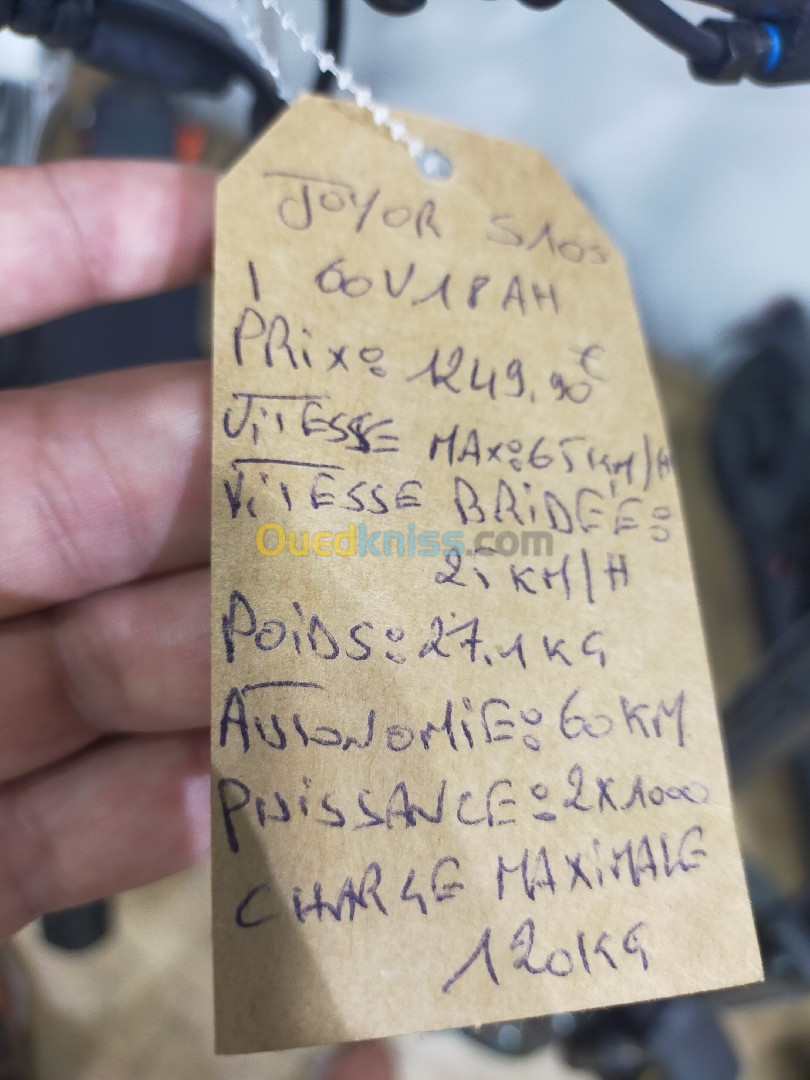 JOYOR S10S
60V18AH
PRIX: 1249,90€
VITESSE MAX: 65KM/H
VITESSE BRIDÉE:
25 KM/H
Ouedkniss.com
POIDS: 27.1KG
AUTONOMIE: 60KM
PUISSANCE: 2X1000
CHARGE MAXIMALE
120KG